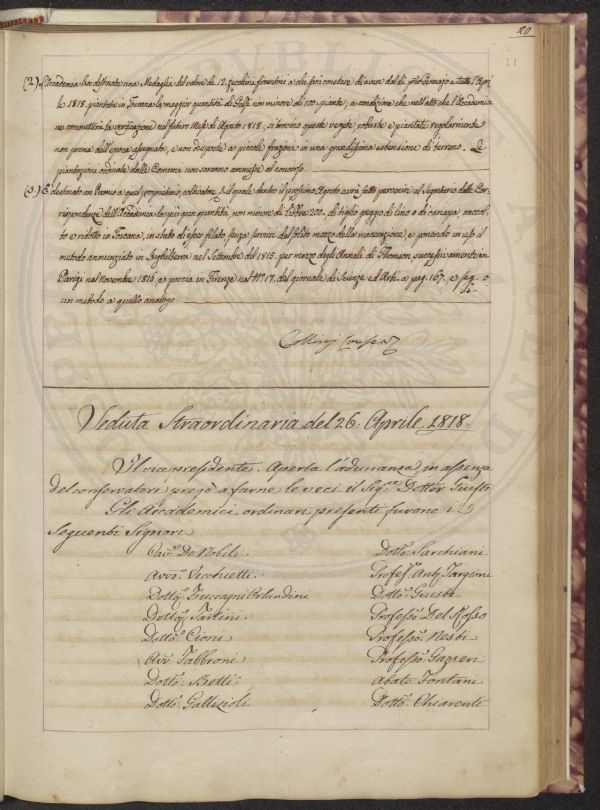 20
11
(2) L'Accademia ha destinato una Medaglia del valore di 12. zecchini fiorentini a chi farà constare di avere dal dì pmo Gennajo a tutto l'Apri
le 1818. piantata in Toscana la maggior quantità di Gelsi non minore di 100. piante; a condizione che nell'atto che l'Accademia
ne commetterà la verificazione nel futuro Mese di Agosto 1818. si trovino queste vegete, robuste e piantate regolarmente
non prima dell'epoca assegnata, e non disposte a piccole frazioni in una grandissima estensione di terreno. Le
piantazioni ordinate dalle Comuni non saranno ammesse al concorso.
(3) È destinato un Premio a quel proprietario, coltivatore &. il quale dentro il prossimo Agosto avrà fatto pervenire al Segretario delle Cor-
rispondenze dell'Accademia la più gran quantità, non minore di Libbre 200. di tiglio greggio di lino o di canapa, raccol-
to e ridotto in Toscana, in stato di esser filato senza servirsi del solito mezzo della macerazione, e ponendo in uso il
metodo annunziato in Inghilterra nel Settembre del 1815. per mezzo degli Annali di Thomson, successivamente in
Parigi nel Novembre 1816. e poscia in Firenze nel No. 17. del giornale di Scienze ed Arti. a pag. 167. e seg. o
un metodo a quello analogo
Veduta Straordinaria del 26. Aprile 1818.
Il vice presidente. Aperta l'adunanza, in assenza
del conservatore pregò a farne le veci il Sigre. Dottor Giusti
Gli Accademici ordinari presenti furono i
Seguenti Signori
Cave. De Nobili
Avvo. Vecchietti
Dotto. Zuccagni Orlandini
Dotto. Tartini
Dotto. Cioni
Avv. Fabbroni
Dotto. Betti
Dotto. Gallizioli
Dotto. Sarchiani
Profess. Antº. Targioni
Dotto. Giusti
Professo. Del Rosso
Professo. Nesbi
Professo. Gazzeri
Abate Fontani
Dotto. Chiarenti